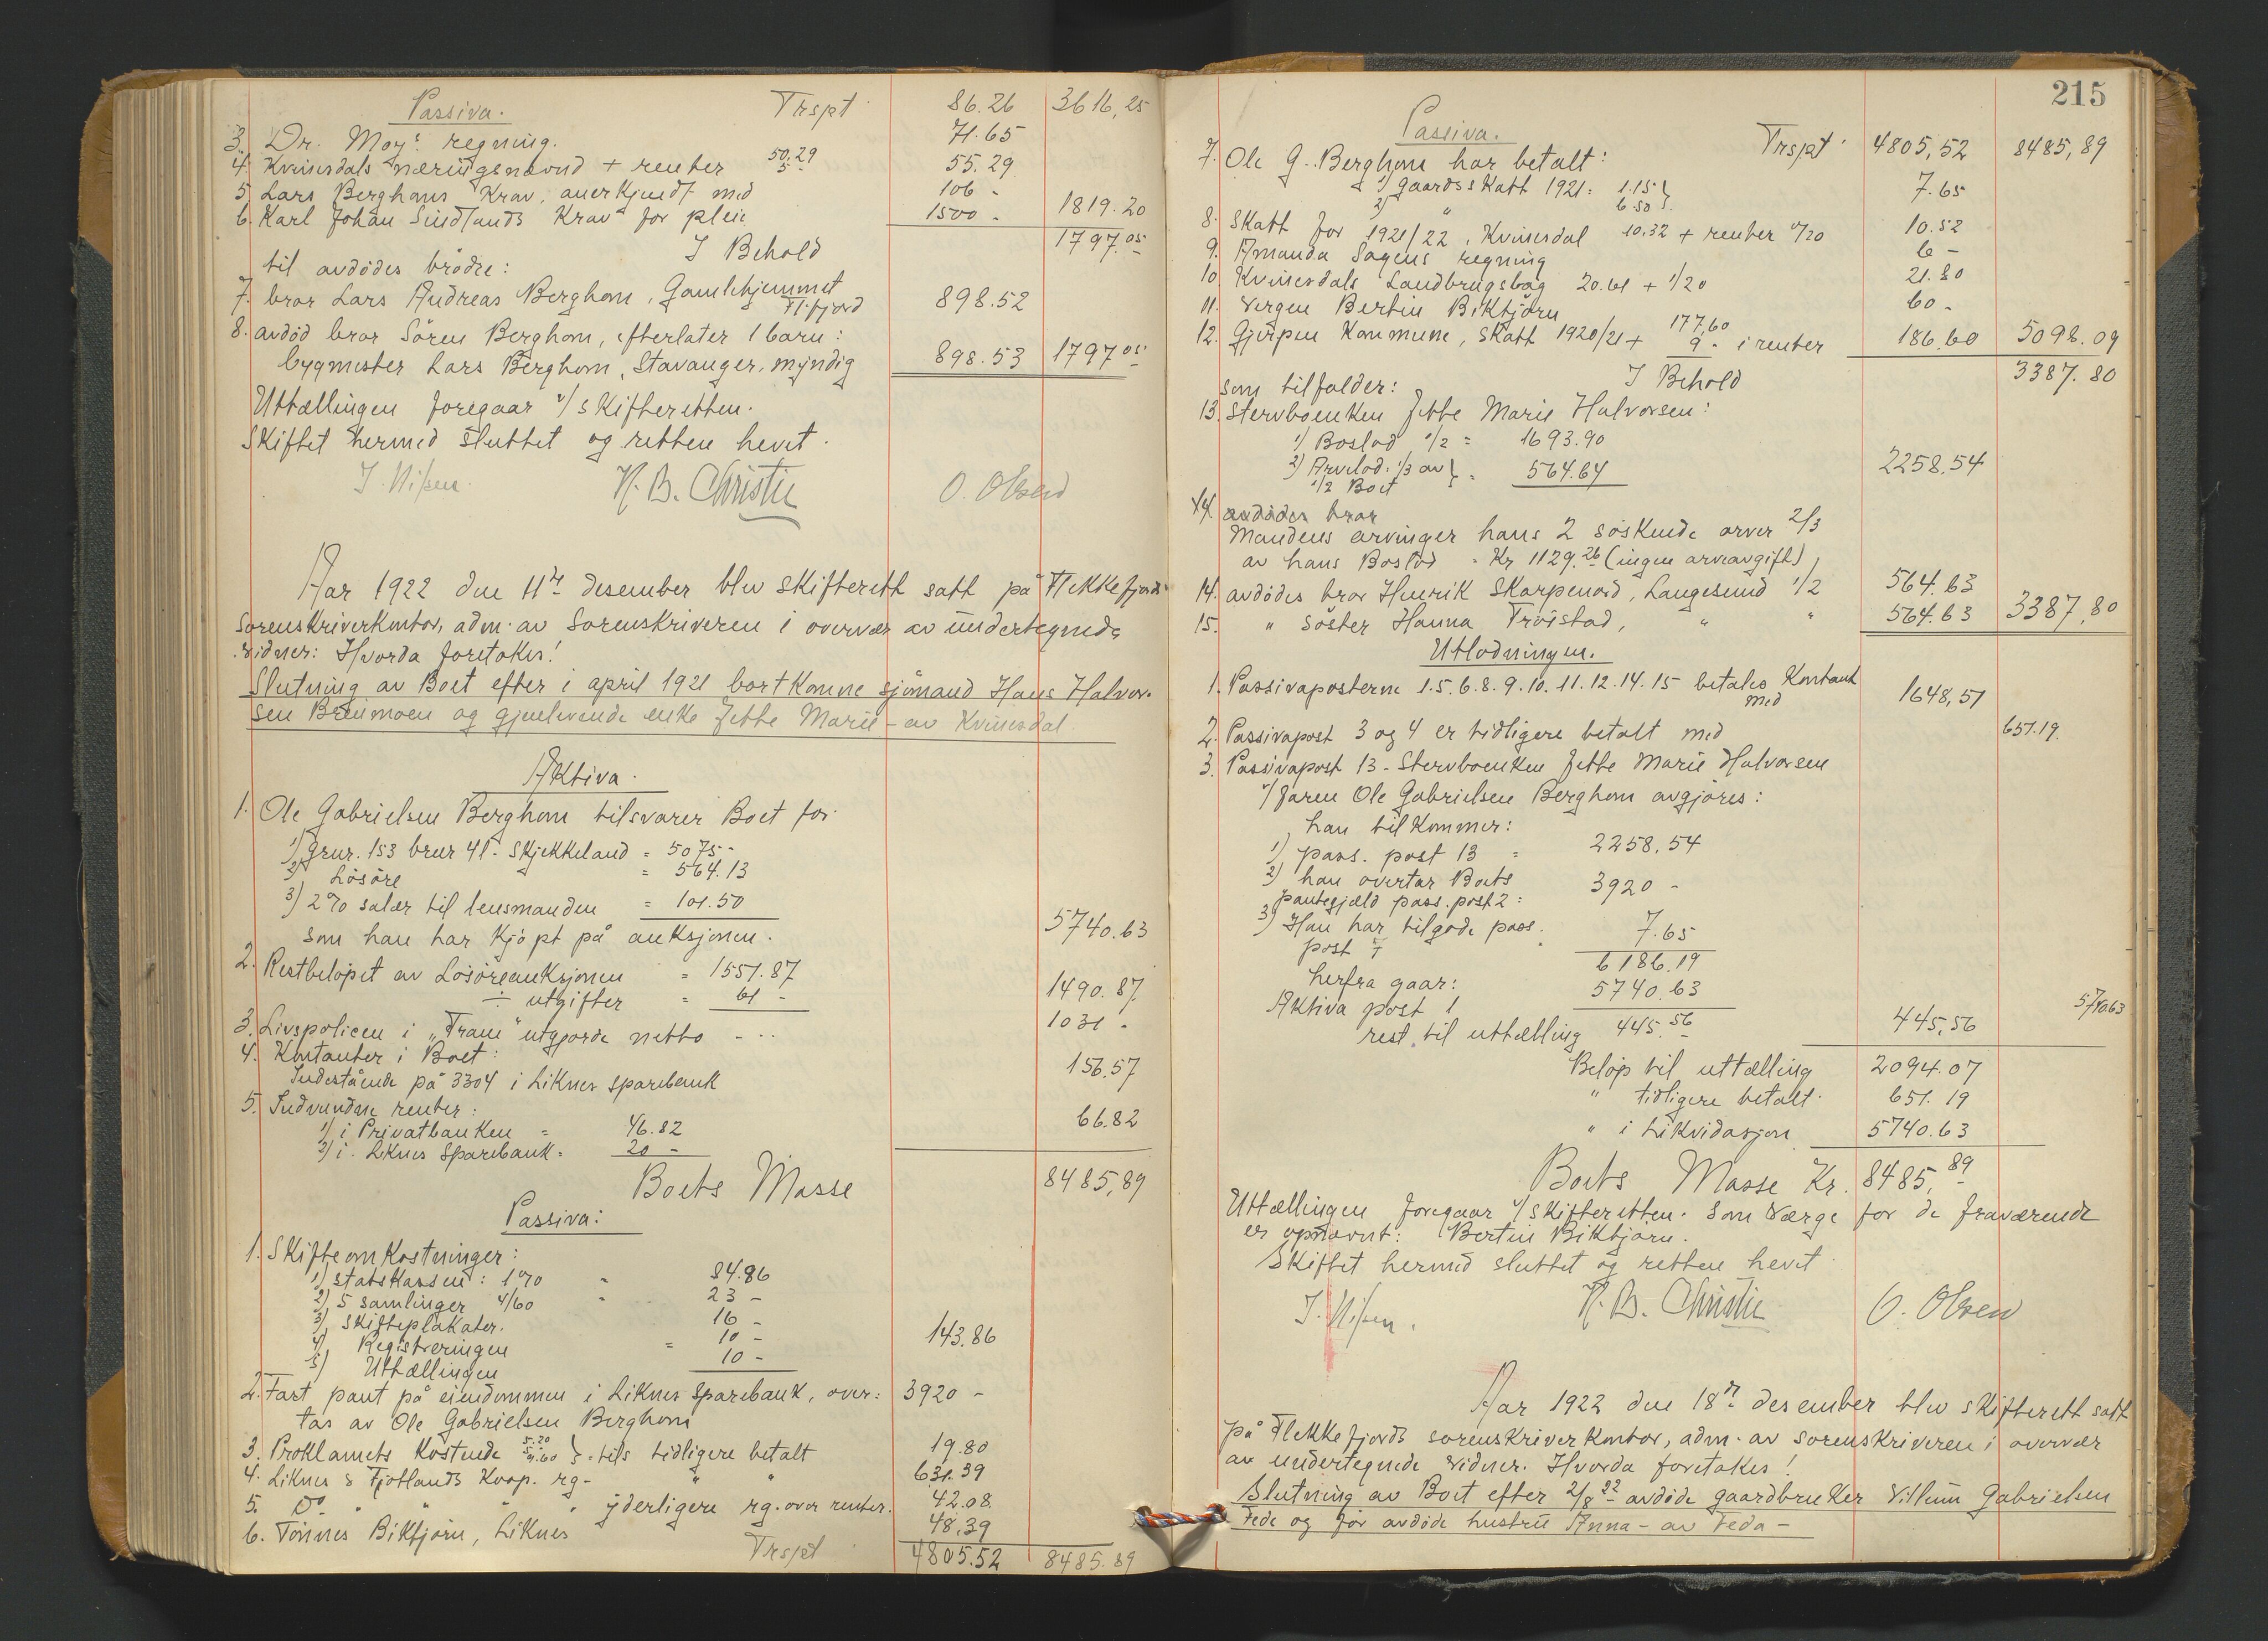 Passiva. Trspt 86.26 3616,25
3. Dr. Moys regning. 71.65
4. Kvinesdals næringsnævnd + renter 50.29 5.- 55.29
5. Lars Berghoms Krav, anerkjendt med 106 -
6. Karl Johan Sindlands Krav for pleie 1500 - 1819.20
I Behold 1797.05
til avdödes brödre:
7. bror Lars Andreas Berghom, Gamlehjemmet Fl.fjord 898.52
8. avdöd bror Sören Berghom, efterlater 1 barn:
bygmester Lars Berghom, Stavanger, myndig 898.53 1797.05
Uttællingen foregaar v/ skifteretten.
Skiftet hermed sluttet og retten hevet.
J. Nissen. N. B. Christie O. Olsen
Aar 1922 den 11te desember blev skifterett satt på Flekkefjords
Sorenskriverkontor, adm. av Sorenskriveren i overvær av undertegnede
vidner: Hvorda foretokes!
Slutning av Boet efter i april 1921 bortkomne sjömand Hans Halvor-
sen Breimoen og gjenlevende enke Jette Marie - av Kvinesdal.
Aktiva.
1. Ole Gabrielsen Berghom tilsvarer Boet for
1) grnr. 153 brnr 41 - Skjekkeland = 5075 -
2) Lösöre = 564.13
3) 2% salær til lensmanden = 101.50
som han har kjöpt på auksjonen. 5740.63
2. Restbelöpet av Lösöreauksjonen = 1551.87
÷ utgifter = 61 - 1490.87
3. Livspolicen i "Fram" utgjorde netto - ... 1031 -
4. Kontanter i Boet:
Indestående på 3304 i Liknes sparebank 156.57
5. Indvundne renter:
1) i Privatbanken = 46.82 66.82
2) i Liknes Sparebank = 20 -
Boets Masse 8485,89
Passiva:
1. Skifteomkostninger:
1) statskassen: 1% = 84.86
2) 5 samlinger 4/60 = 23 -
3) skifteplakater. 16 -
4) Registreringen = 10 - 143.86
5) Uttællingen 10 -
2. Fast pant på eiendommen i Liknes Sparebank, over= 3920 -
tas av Ole Gabrielsen Berghom
3. Proklamets Kostende } tils tidligere betalt 19.80
4. Liknes & Fjotlands Koop. rg- " " 631.39
5. Do " " " yderligere rg. over renter. 42.08
6. Tönnes Bikfjörn, Liknes 48.39
Trspt 4805.52 8485.89
215
Passiva. Trspt 4805,52 8485,89
7. Ole G. Berghom har betalt:
1) gaardsskatt 1921: 1.15 } 7.65
2) " 6.50
8. Skatt for 1921/22, Kvinesdal 10.32 + renter 0/20 10.52
9. Amanda Sagens regning 6 -
10. Kvinesdals Landbrugslag 20.61 + 1/20 21.80
11. Vergen Bertin Bikfjörn 60 -
12. Gjerpen Kommune, skatt 1920/21 + 177.60 9 - i renter 186.60 5098.09
I Behold 3387.80
som tilfalder:
13. Stervboenken Jette Marie Halvorsen:
1) Boslod 1/2 = 1693.90
2) Arvelod: 1/3 av 1/2 Boet } = 564.64 2258.54
14. avdödes bror
Mandens arvinger hans 2 söskende arver 2/3
av hans Boslod = Kr 1129.26 (ingen arveavgift)
14. avdödes bror Henrik Skarpenord, Langesund 1/2 564.63
15. " söster Hanna Tröistad, " " 564.63 3387,80
Utlodningen.
1. Passivaposterne 1.5.6.8.9.10.11.12.14.15 betales Kontant med 1648,51
2. Passivapost 3 og 4 er tidligere betalt med 651.19
3. Passivapost 13 - Stervboenken Jette Marie Halvorsen
v/ faren Ole Gabrielsen Berghom avgjöres:
han tilkommer:
1) pass. post 13 = 2258,54
2) han overtar Boets
pantegjæld pass. post 2: 3920 -
3) Han har tilgode pass.
post 7 7.65
6186.19
herfra gaar:
Aktiva post 1 5740.63 5740.63
rest til uttælling 445.56 445,56
Belöp til uttælling 2094.07
" tidligere betalt 651.19
" i Likvidasjon 5740.63
Boets Masse Kr. 8485,89
Uttællingen foregaar v/ skifteretten. Som værge for de fraværende
er opnævnt: Bertin Bikfjörn.
Skiftet hermed sluttet og retten hevet
J. Nissen. N. B. Christie O. Olsen
Aar 1922 den 18de desember blev skifterett satt
på Flekkefjords sorenskriverkontor, adm. av sorenskriveren i overvær
av undertegnede vidner. Hvorda foretokes!
Slutning av Boet efter 2/8 22 avdöde gaardbruker Villum Gabrielsen
Fede og för avdöde hustru Anna - av Feda -